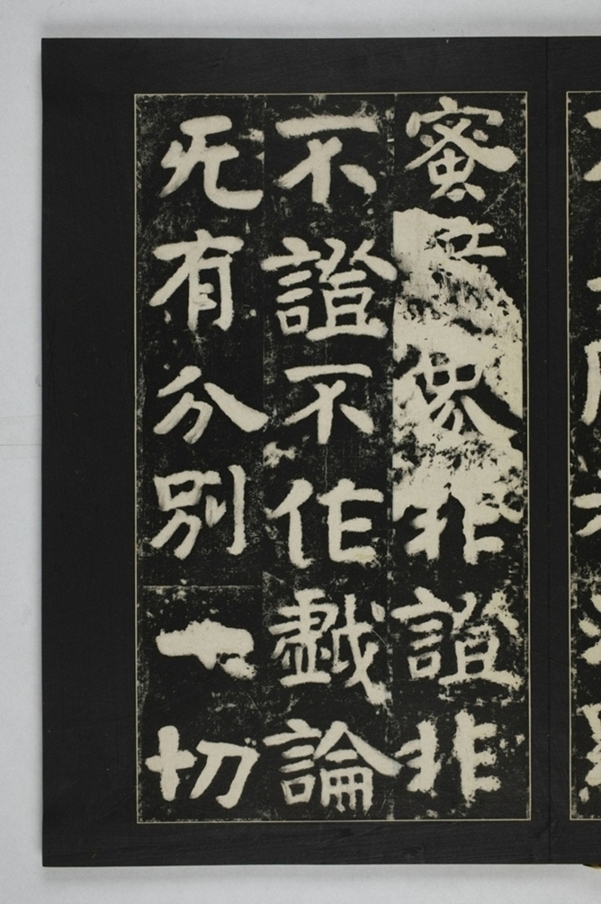 蜜界非證非
不證不作戲論
无有分別一切